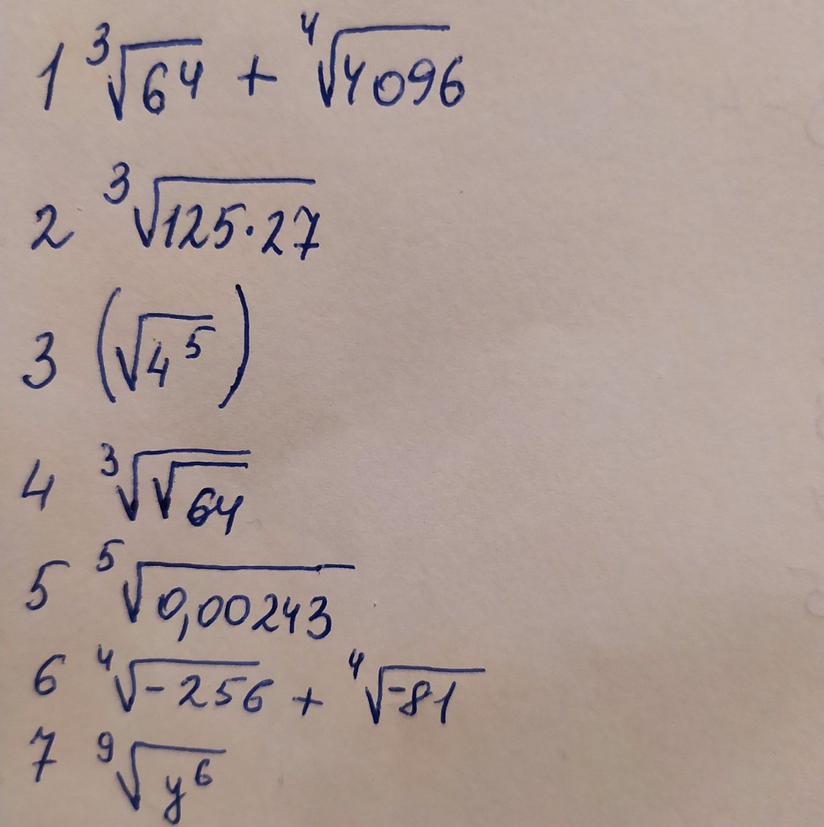 1 ³√64 + ⁴√4096
2 ³√125·27
3 (√4⁵)
4 ³√√64
5 ⁵√0,00243
6 ⁴√-256 + ⁴√-81
7 ⁹√y⁶